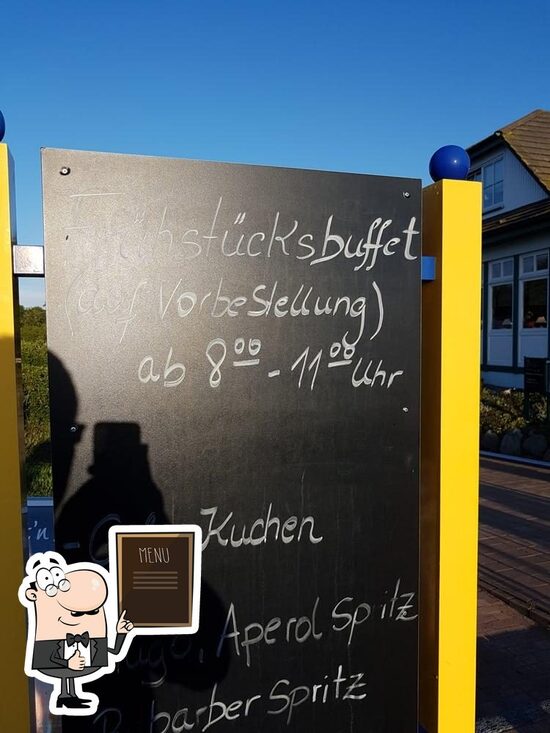 Frühstücksbuffet
(auf Vorbestellung)
ab 8⁰⁰ - 11⁰⁰ Uhr
Kuchen
MENU
Aperol Spritz
Rhabarber Spritz